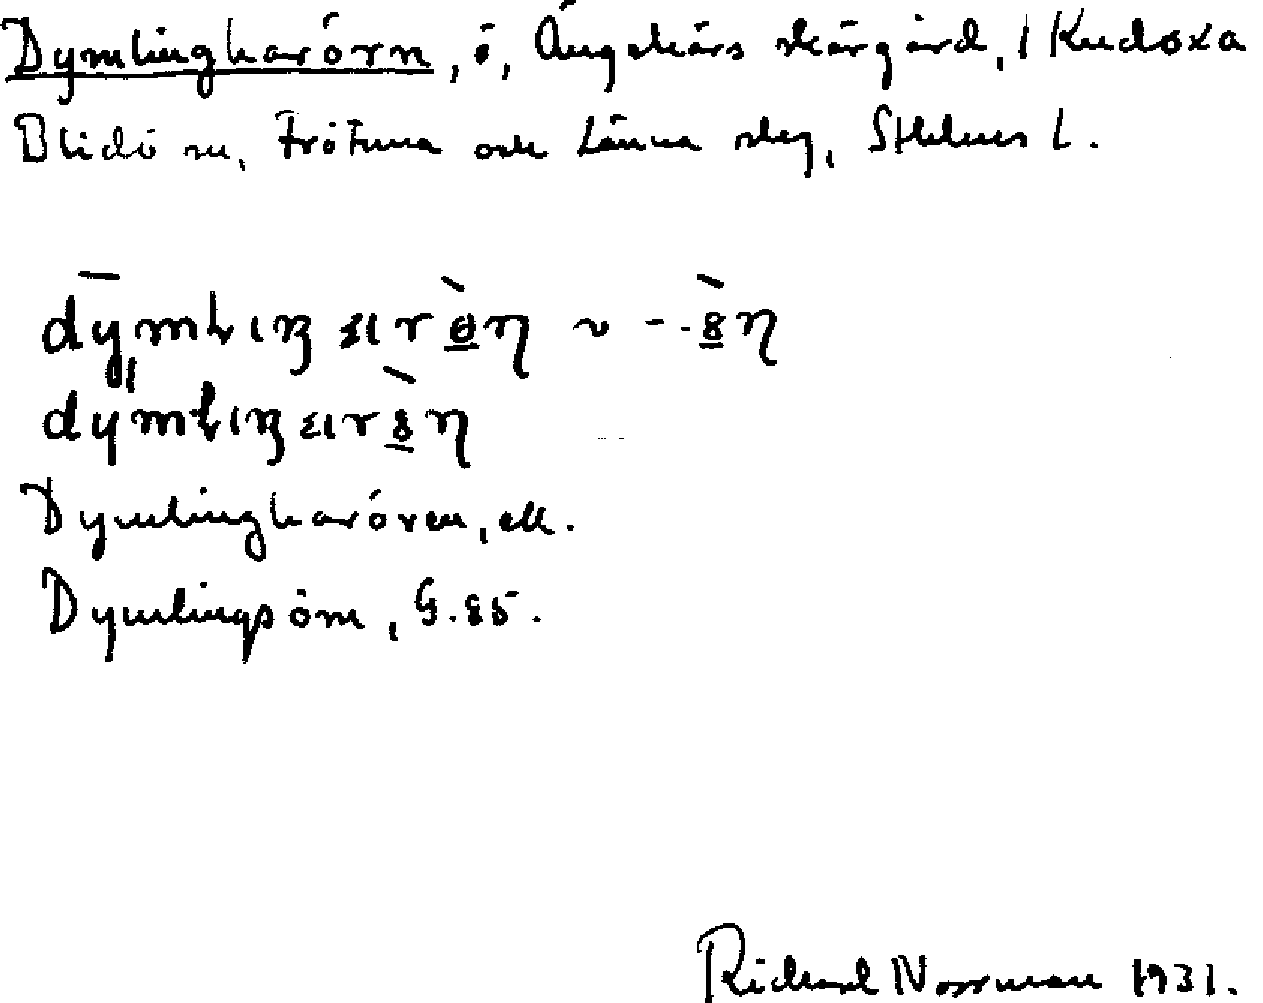 Dymlingharörn, ö, Ängskärs skärgård, / Kudoxa
Blidö sn, Frötuna och Länna skg, Sthlms l.
Dymlingharören, ell.
Dymlingsörn, G.85.
Richard Norrman 1931.